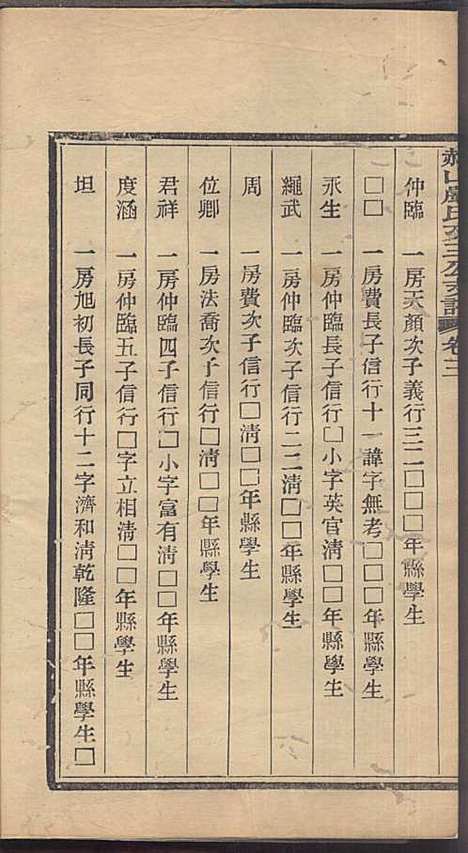 仲臨　一房天顏次子義行三二□□□年縣學生
□□　一房費長子信行十一諱字無考□□□年縣學生
永生　一房仲臨長子信行□小字英官淸□□年縣學生
繩武　一房仲臨次子信行二二淸□□年縣學生
周　一房費次子信行□淸□□年縣學生
位卿　一房法喬次子信行□淸□□年縣學生
君祥　一房仲臨四子信行□小字富有淸□□年縣學生
度涵　一房仲臨五子信行□字立相淸□□年縣學生
坦　一房旭初長子同行十二字濟和淸乾隆□□年縣學生□